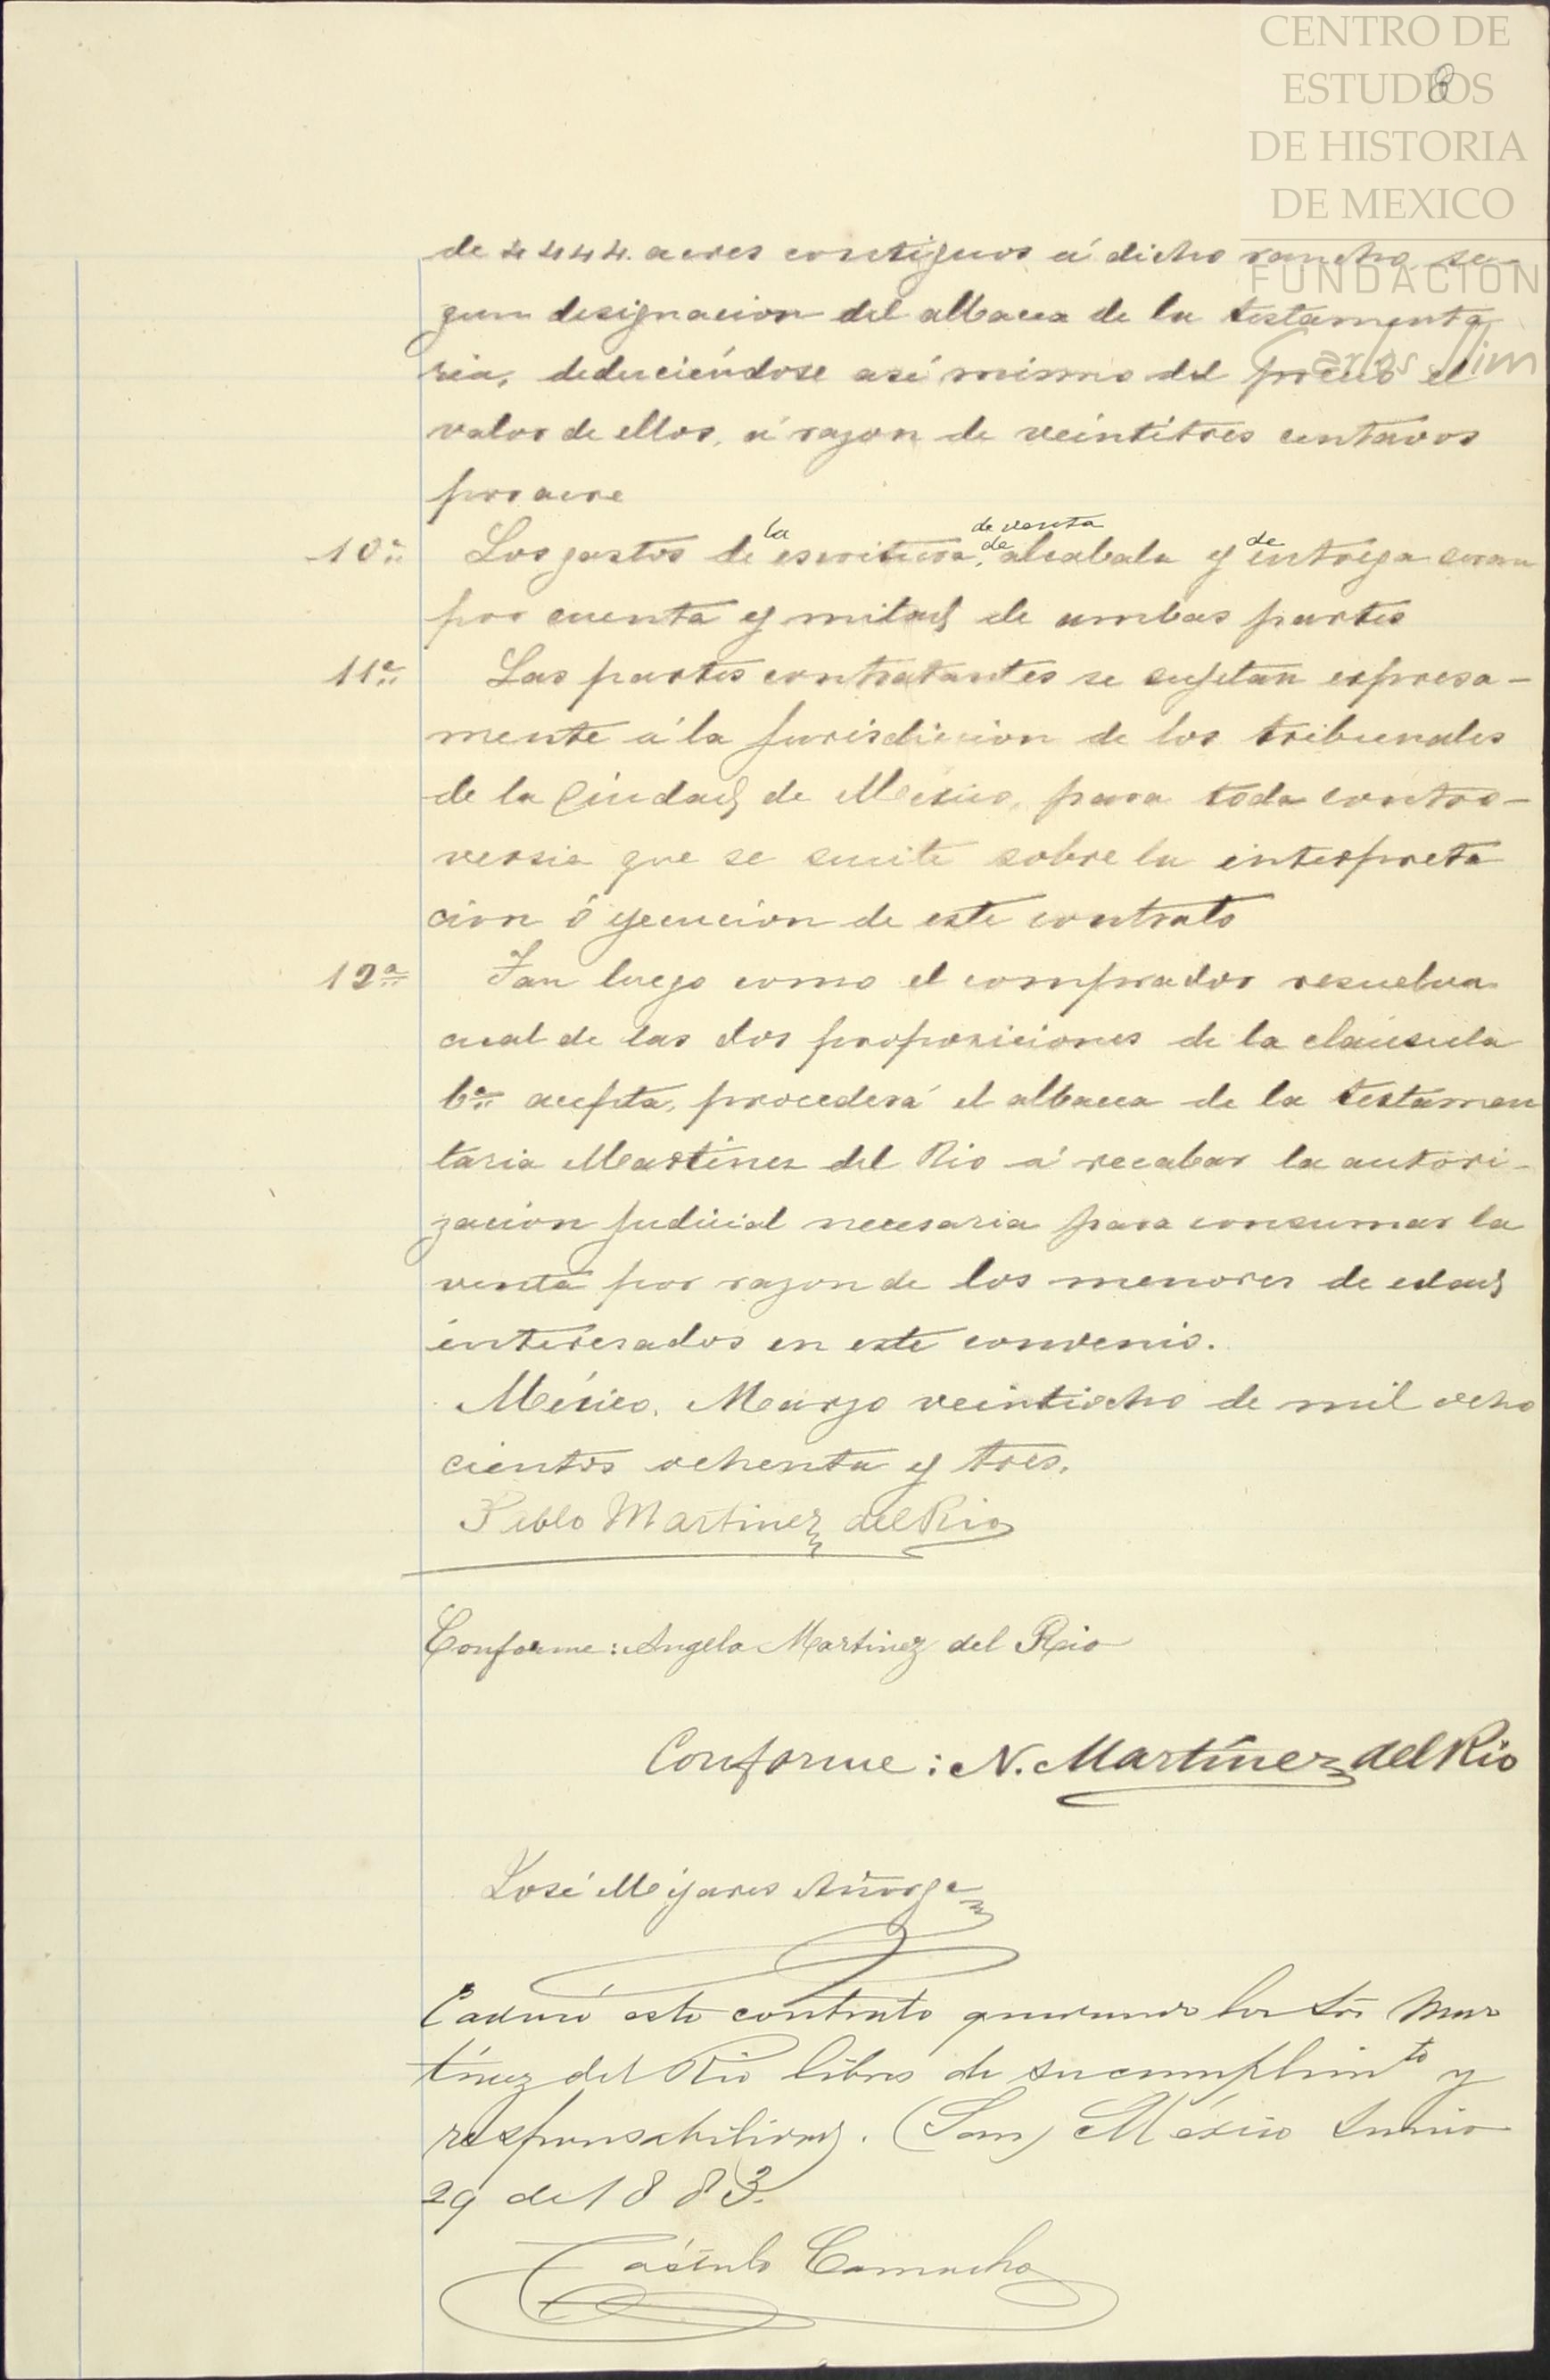 CENTRO DE
ESTUDIOS
DE HISTORIA
DE MEXICO
FUNDACION
Carlos Slim
8
de 4444. acres contiguos á dicho rancho se-
gun designacion del albacea de la testamenta
ria, deduciéndose así mismo del precio el
valor de ellos, á razon de veintitres centavos
por acre
10ª Los gastos de la escritura de venta, de alcabala y de entrega seran
por cuenta y mitad de ambas partes
11ª Las partes contratantes se sujetan espresa-
mente á la jurisdiccion de los tribunales
de la Ciudad de Mexico, para toda contro-
versia que se sucite sobre la interpreta
cion ó ejecucion de este contrato
12ª Tan luego como el comprador resuelva
cual de las dos proposiciones de la claúsula
6ª acepta, procederá el albacea de la testamen
taria Martinez del Rio á recabar la autori-
zacion judicial necesaria para consumar la
venta por razon de los menores de edad
interesados en este convenio.
México, Marzo veintiocho de mil ocho
cientos ochenta y tres.
Pablo Martinez del Rio
Conforme: Angela Martinez del Rio
Conforme: N. Martínez del Rio
José Mijares Añorga
Caducó este contrato quedando los Sres Mar
tínez del Rio libres de su cumplimto y
responsabilidad. México Junio
29 de 1883.
Camacho